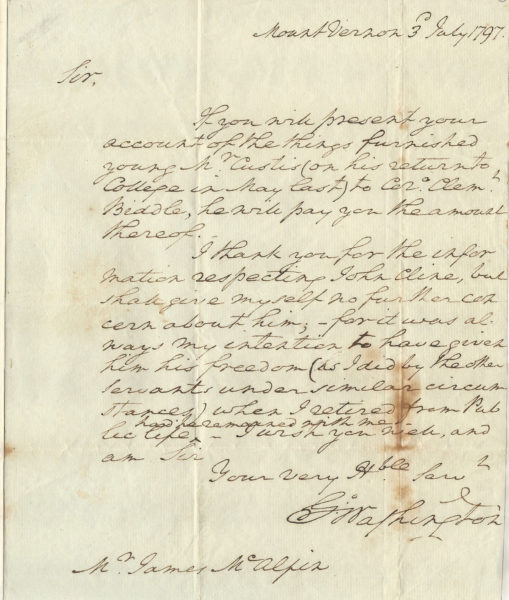 Mount Vernon 3d July 1797.
Sir,
If you will present your
account of the things furnished
young Mr. Custis (on his return to
College in May last) to Colo. Clemt.
Biddle, he will pay you the amount
thereof.
I thank you for the infor
mation respecting John Cline, but
shall give myself no further con
cern about him; - for it was al-
ways my intention to have given
him his freedom (as I did by the other
servants under similar circum
stances) when I retired from Pub
had he remained with me.-
lic life. - I wish you well, and
am Sir
Your very Hble Servt
Go: Washington
Mr. James McAlpin